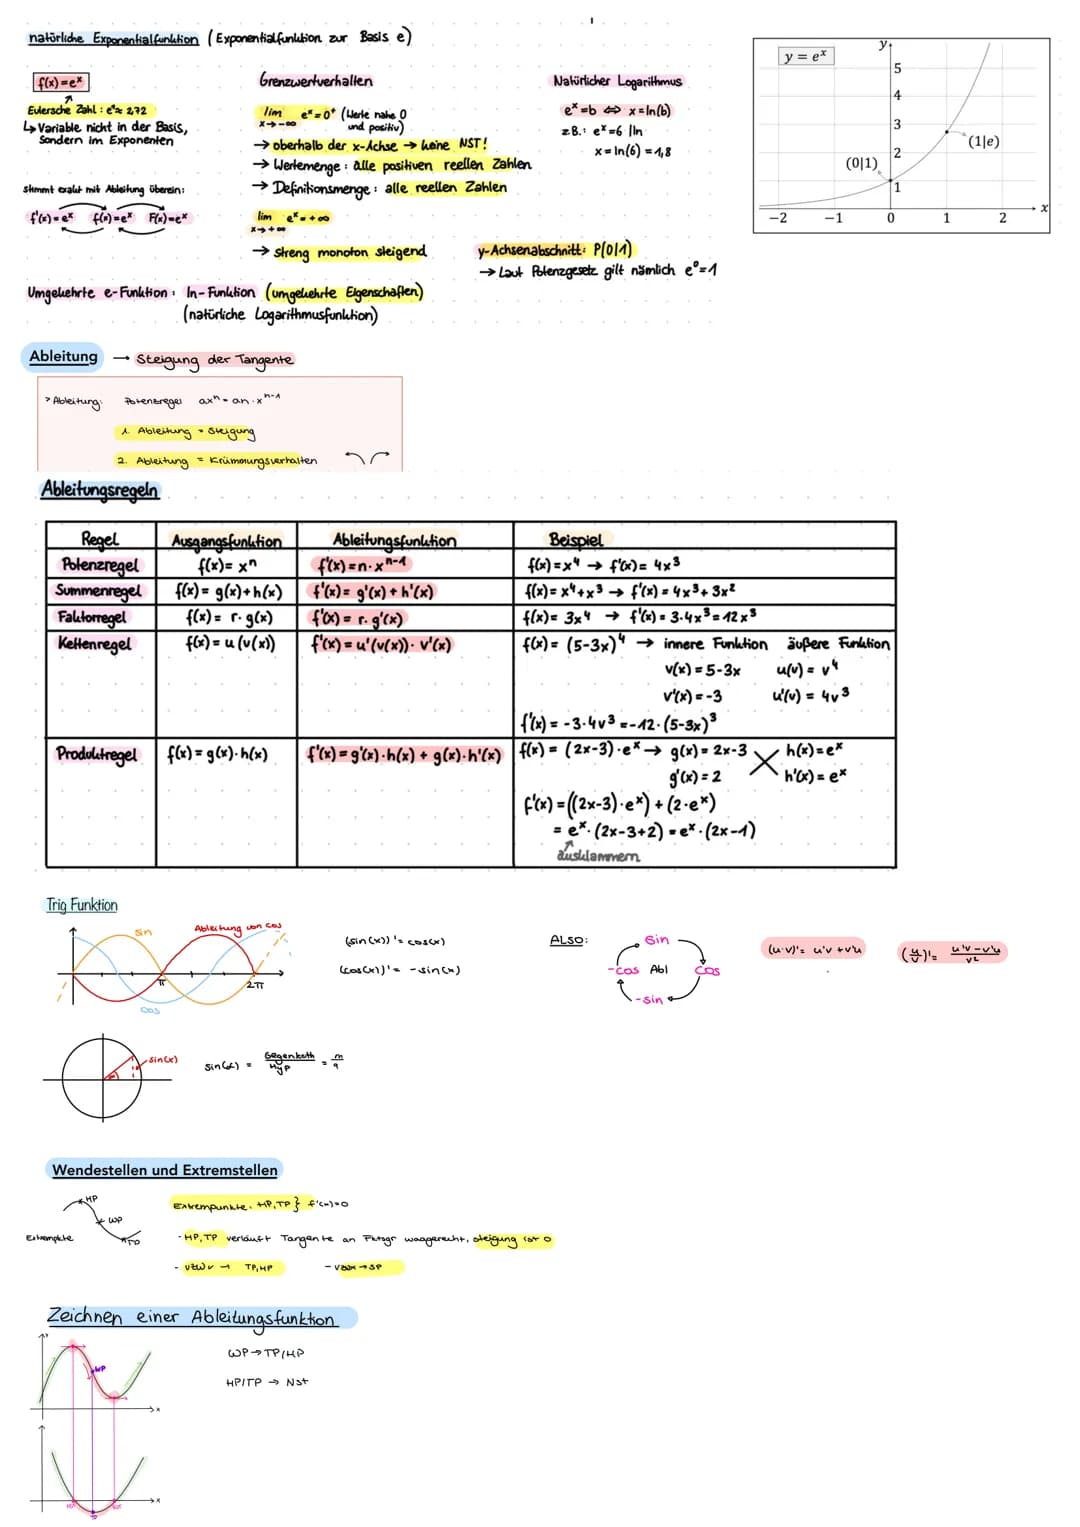 natürliche Exponentialfunktion (Exponentialfunktion zur Basis e)
f(x)=eˣ
Eulersche Zahl: e¹≈ 2,72
↳ Variable nicht in der Basis,
Sondern im Exponenten
stimmt exakt mit Ableitung überein:
f'(x)=eˣ f(x)=eˣ F(x)=eˣ
Grenzwertverhalten
lim eˣ=0⁺ (Werte nahe 0
x→-∞ und positiv)
→ oberhalb der x-Achse → keine NST!
→ Wertemenge: alle positiven reellen Zahlen
→ Definitionsmenge: alle reellen Zahlen
lim eˣ=+∞
x→+∞
→ streng monoton steigend
Natürlicher Logarithmus
eˣ=b ⇔ x=ln(b)
zB.: eˣ=6 |ln
x=ln(6)=1,8
y-Achsenabschnitt: P(0|1)
→ Laut Potenzgesetz gilt nämlich e⁰=1
Umgekehrte e-Funktion: ln-Funktion (umgekehrte Eigenschaften)
(natürliche Logarithmusfunktion)
y = eˣ
y
5
4
3
2
1
(1|e)
(0|1)
−2 −1 0 1 2 x
Ableitung → Steigung der Tangente
> Ableitung: Potenzregel axⁿ = an·xⁿ⁻¹
1. Ableitung = Steigung
2. Ableitung = Krümmungsverhalten
Ableitungsregeln
Regel Ausgangsfunktion Ableitungsfunktion Beispiel
Potenzregel f(x)= xⁿ f'(x)=n·xⁿ⁻¹ f(x)=x⁴ → f'(x)= 4x³
Summenregel f(x)= g(x)+h(x) f'(x)= g'(x)+h'(x) f(x)= x⁴+x³ → f'(x)= 4x³+3x²
Faktorregel f(x)= r·g(x) f'(x)= r·g'(x) f(x)= 3x⁴ → f'(x)= 3·4x³=12x³
Kettenregel f(x)=u(v(x)) f'(x)=u'(v(x))·v'(x) f(x)= (5-3x)⁴ → innere Funktion äußere Funktion
v(x)=5-3x u(v)= v⁴
v'(x)=-3 u'(v)= 4v³
f'(x)= -3·4v³=-12·(5-3x)³
Produktregel f(x)=g(x)·h(x) f'(x)=g'(x)·h(x)+g(x)·h'(x) f(x)= (2x-3)·eˣ → g(x)= 2x-3 h(x)=eˣ
g'(x)=2 h'(x)=eˣ
f'(x)=((2x-3)·eˣ)+(2·eˣ)
= eˣ·(2x-3+2)=eˣ·(2x-1)
ausklammern
Trig Funktion
sin Ableitung von cos
π 2π
cos
(sin(x))'= cos(x)
(cos(x))'= -sin(x)
ALSO:
sin
-cos Abl cos
-sin
(u·v)'= u'v+v'u
(u/v)'= u'v-v'u / v²
sin(x)
sin(α) = Gegenkath / Hyp
Wendestellen und Extremstellen
HP
WP
TP
Extrempkte
Extrempunkte: HP, TP } f'(x)=0
- HP, TP verläuft Tangente an waagerecht, steigung ist 0
- VZW → TP, HP
→ SP
Zeichnen einer Ableitungsfunktion
y
WP
x
WP → TP/HP
HP/TP → Nst
x